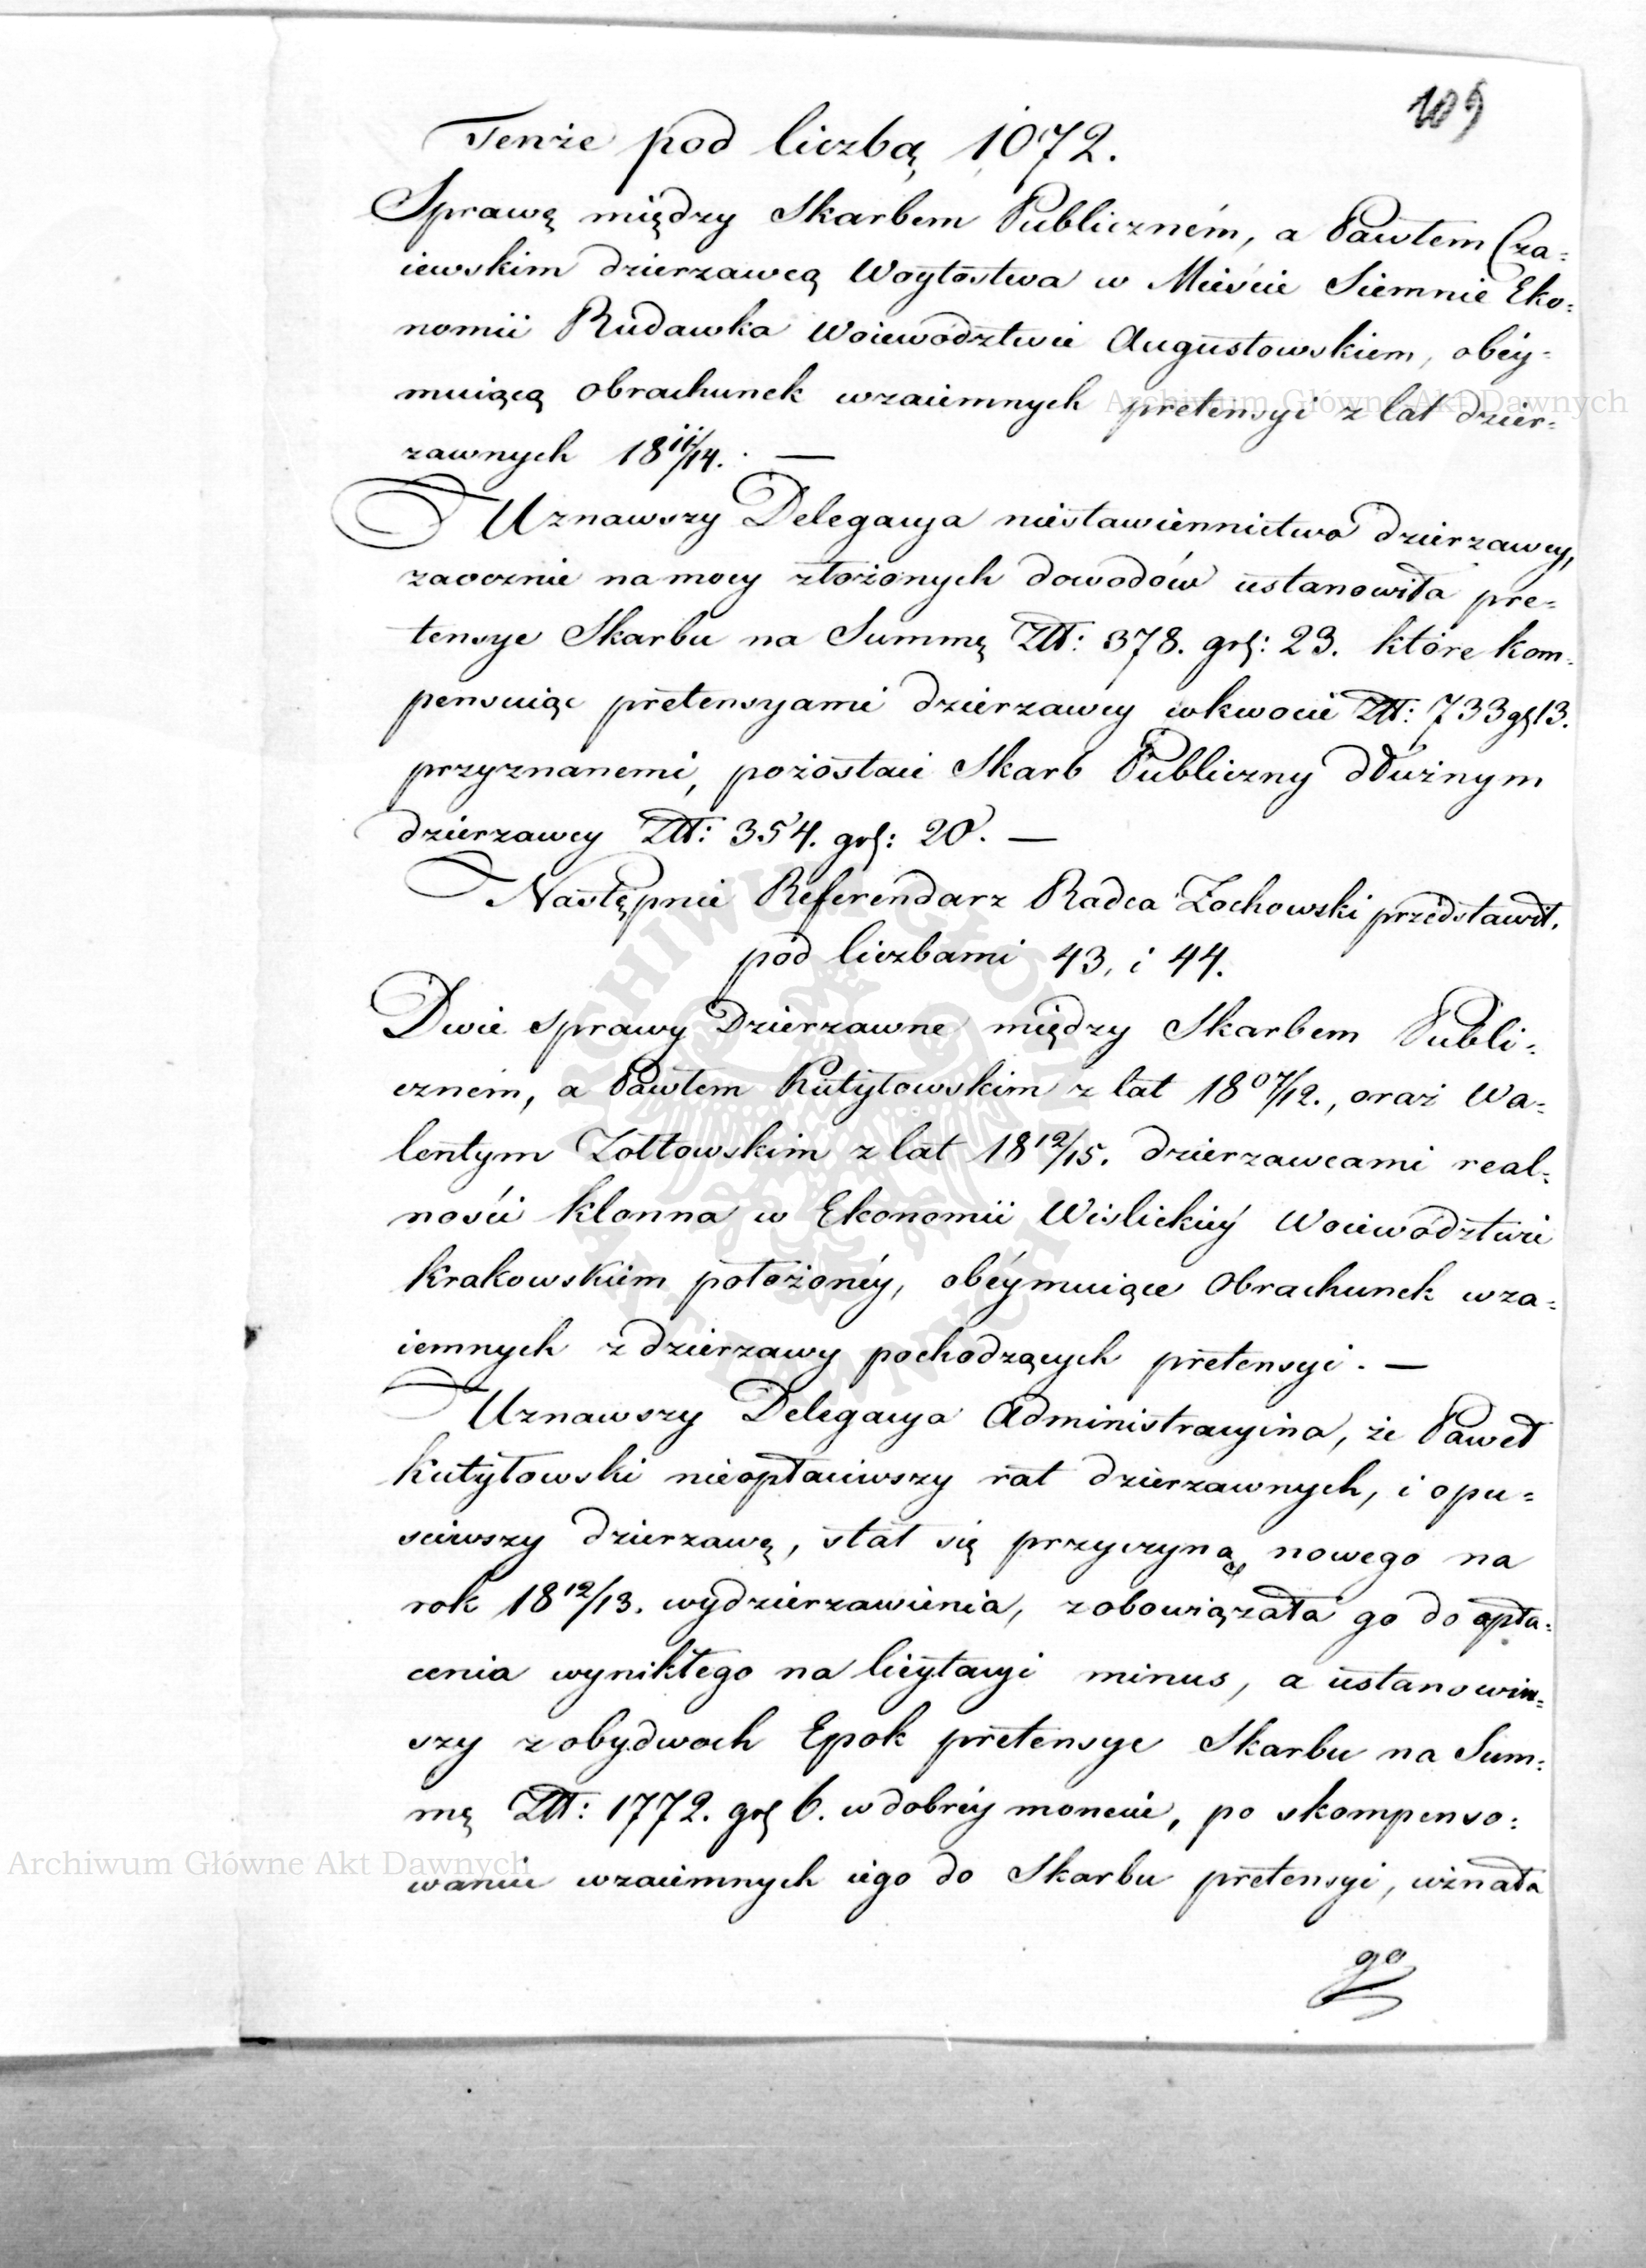 109
Tenże pod liczbą 1072.
Sprawę między Skarbem Publiczném, a Pawłem Cza=
iewskim dzierzawcą Woytostwa w Mieście Siemnie Eko=
nomii Rudawka Woiewództwie Augustowskiem, obéy=
muiącą obrachunek wzaiemnych pretensyi z lat dzier=
zawnych 18 11/14. —
Uznawszy Delegacya niestawiennictwo dzierzawcy,
zaocznie na mocy złożonych dowodów ustanowiła pre=
tensye Skarbu na Summę Złt: 378. grs: 23. które kom=
pensuiąc pretensyami dzierzawcy w kwocie Złt: 733 gs 13.
przyznanemi, pozostaie Skarb Publiczny dłużnym
dzierzawcy Złt: 354. grs: 20. —
Następnie Referendarz Radca Żochowski przedstawił.
pod liczbami 43, i 44.
Dwie sprawy Dzierzawne między Skarbem Publi=
czném, a Pawłem Kutyłowskim z lat 18 07/12., oraz Wa=
lentym Zołtowskim z lat 18 12/15. dzierzawcami real=
ności Klonna w Ekonomii Wislickiéy Woiewództwie
Krakowskiem położonéy, obéymuiące obrachunek wza=
iemnych z dzierzawy pochodzących pretensyi. —
Uznawszy Delegacya Administracyina, że Paweł
Kutyłowski nieopłaciwszy rat dzierzawnych, i opu=
sciwszy dzierzawę, stał się przyczyną nowego na
rok 18 12/13. wydzierzawienia, zobowiązała go do opła=
cenia wynikłego na licytacyi minus, a ustanowiw=
szy z obydwoch Epok pretensye Skarbu na Sum=
mę Złt: 1772. grs 6. w dobréy monecie, po skompenso=
waniu wzaiemnych iego do Skarbu pretensyi, uznała
go
Archiwum Główne Akt Dawnych
Archiwum Główne Akt Dawnych
ARCHIWUM GŁÓWNE AKT DAWNYCH